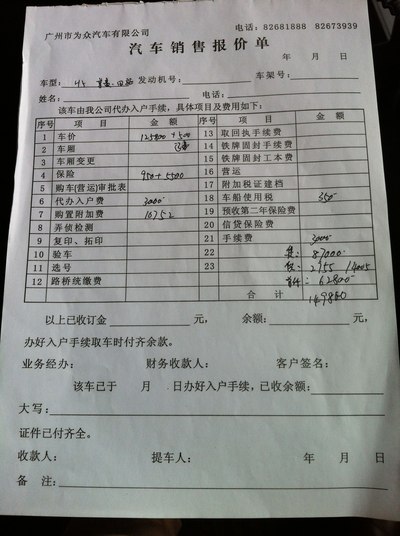 广州市为众汽车有限公司 电话：82681888 82673939
汽车销售报价单
年 月 日
车型： 发动机号： 车架号：
姓名： 电话：
该车由我公司代办入户手续，具体项目及费用如下：
序号 项 目 金 额 序号 项 目 金 额
1 车价 125800+500 13 取回执手续费
2 车厢 14 铁牌固封手续费
3 车厢变更 15 铁牌固封工本费
4 保险 950+5500 16 营运
5 购车(营运)审批表 17 附加税证建档
6 代办入户费 3000 18 车船使用税 350
7 购置附加费 10752 19 预收第二年保险费
8 弄侦检测 20 信贷保险费
9 复印、拓印 21 手续费 3000
10 验车 22 87000
11 选号 23 2955 14005
12 路桥统缴费 62800
合 计 149860
以上已收订金 元， 余额： 元，
办好入户手续取车时付齐余款。
业务经办： 财务收款人： 客户签名：
该车已于 月 日办好入户手续，已收余额：
大写：
证件已付齐全。
收款人： 提车人： 年 月 日
备 注：